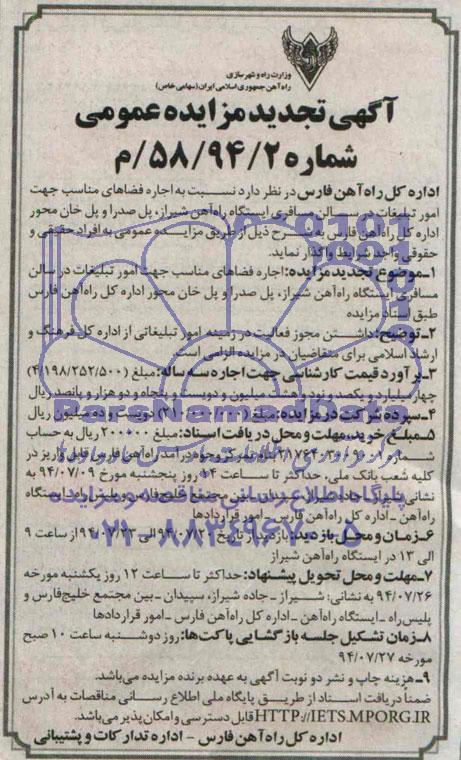 وزارت راه و شهرسازی
راه آهن جمهوری اسلامی ایران (سهامی خاص)
آگهی تجدید مزایده عمومی
شماره ۵۸/۹۴/۲/م
اداره کل راه آهن فارس در نظر دارد نسبت به اجاره فضاهای مناسب جهت
امور تبلیغات در سالن مسافری ایستگاه راه آهن شیراز، پل صدرا و پل خان محور
اداره کل راه آهن فارس به شرح ذیل از طریق مزایده عمومی به افراد حقیقی و
حقوقی واجد شرایط واگذار نماید.
۱-موضوع تجدید مزایده: اجاره فضاهای مناسب جهت امور تبلیغات در سالن
مسافری ایستگاه راه آهن شیراز، پل صدرا و پل خان محور اداره کل راه آهن فارس
طبق اسناد مزایده
۲-توضیح: داشتن مجوز فعالیت در زمینه امور تبلیغاتی از اداره کل فرهنگ و
ارشاد اسلامی برای متقاضیان در مزایده الزامی است.
۳-برآورد قیمت کارشناسی جهت اجاره سه ساله: مبلغ (۴/۱۹۸/۲۵۲/۵۰۰)
چهار میلیارد و یکصد و نود و هشت میلیون و دویست و پنجاه و دو هزار و پانصد ریال
۴-سپرده شرکت در مزایده: مبلغ (۲۱۰/۰۰۰/۰۰۰) دویست و ده میلیون ریال
۵-مبلغ خرید، مهلت و محل دریافت اسناد: مبلغ ۲۰۰/۰۰۰ ریال به حساب
شماره درآمد راه آهن فارس قابل واریز در
کلیه شعب بانک ملی، حداکثر تا ساعت ۱۴ روز پنجشنبه مورخ ۹۴/۰۷/۰۹ به
نشانی شیراز- جاده شیراز، سپیدان- بین مجتمع خلیج فارس و پلیس راه- ایستگاه
راه آهن -اداره کل راه آهن فارس -امور قراردادها
۶-زمان و محل بازدید: بازدید از تاریخ ۹۴/۰۷/۲۱ الی ۹۴/۰۷/۲۳ از ساعت ۹
الی ۱۳ در ایستگاه راه آهن شیراز
۷-مهلت و محل تحویل پیشنهاد: حداکثر تا ساعت ۱۲ روز یکشنبه مورخه
۹۴/۰۷/۲۶ به نشانی: شیراز - جاده شیراز، سپیدان - بین مجتمع خلیج فارس و
پلیس راه -ایستگاه راه آهن - اداره کل راه آهن فارس -امور قراردادها
۸-زمان تشکیل جلسه بازگشایی پاکت ها: روز دوشنبه ساعت ۱۰ صبح
مورخه ۹۴/۰۷/۲۷
۹-هزینه چاپ و نشر دو نوبت آگهی به عهده برنده مزایده می باشد.
ضمناً دریافت اسناد از طریق پایگاه ملی اطلاع رسانی مناقصات به آدرس
HTTP://IETS.MPORG.IR قابل دسترسی و امکان پذیر می باشد.
اداره کل راه آهن فارس - اداره تدارکات و پشتیبانی
ParsNamadData
۰۲۱-۸۸۳۴۹۶۷۰-۵